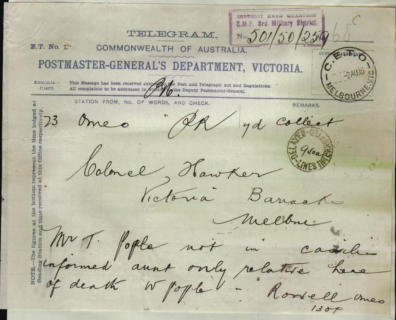 TELEGRAM.
DISTRICT HEAD QUARTERS
C.M.F. 3rd Military District.
501/50/259
B.T. No. 1
COMMONWEALTH OF AUSTRALIA.
POSTMASTER-GENERAL'S DEPARTMENT, VICTORIA.
C.E.T.O
MELBOURNE VIC
This Message has been received subject to the Post and Telegraph Act and Regulations.
All complaints to be addressed in writing to the Deputy Postmaster-General.
STATION FROM, No. OF WORDS, AND CHECK.
REMARKS.
73 Omeo yd collect
Colonel Hawker
Victoria Barracks
Melbne
Mr T. Pople not in
informed aunt only relative here
of death W Pople - Rowell Omeo
NOTE.—The figures at the bottom represent the time lodged at
Sending Station and time received at this Office respectively.